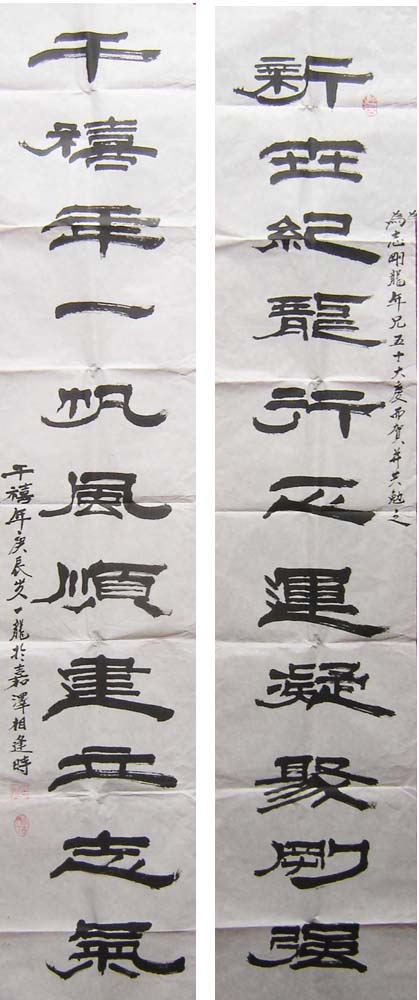 新世紀龍行正運凝聚剛强
為志剛龍年兄五十大慶而賀并共勉之
千禧年一帆風順建立志氣
千禧年庚辰岁一龍於嘉澤相逢時